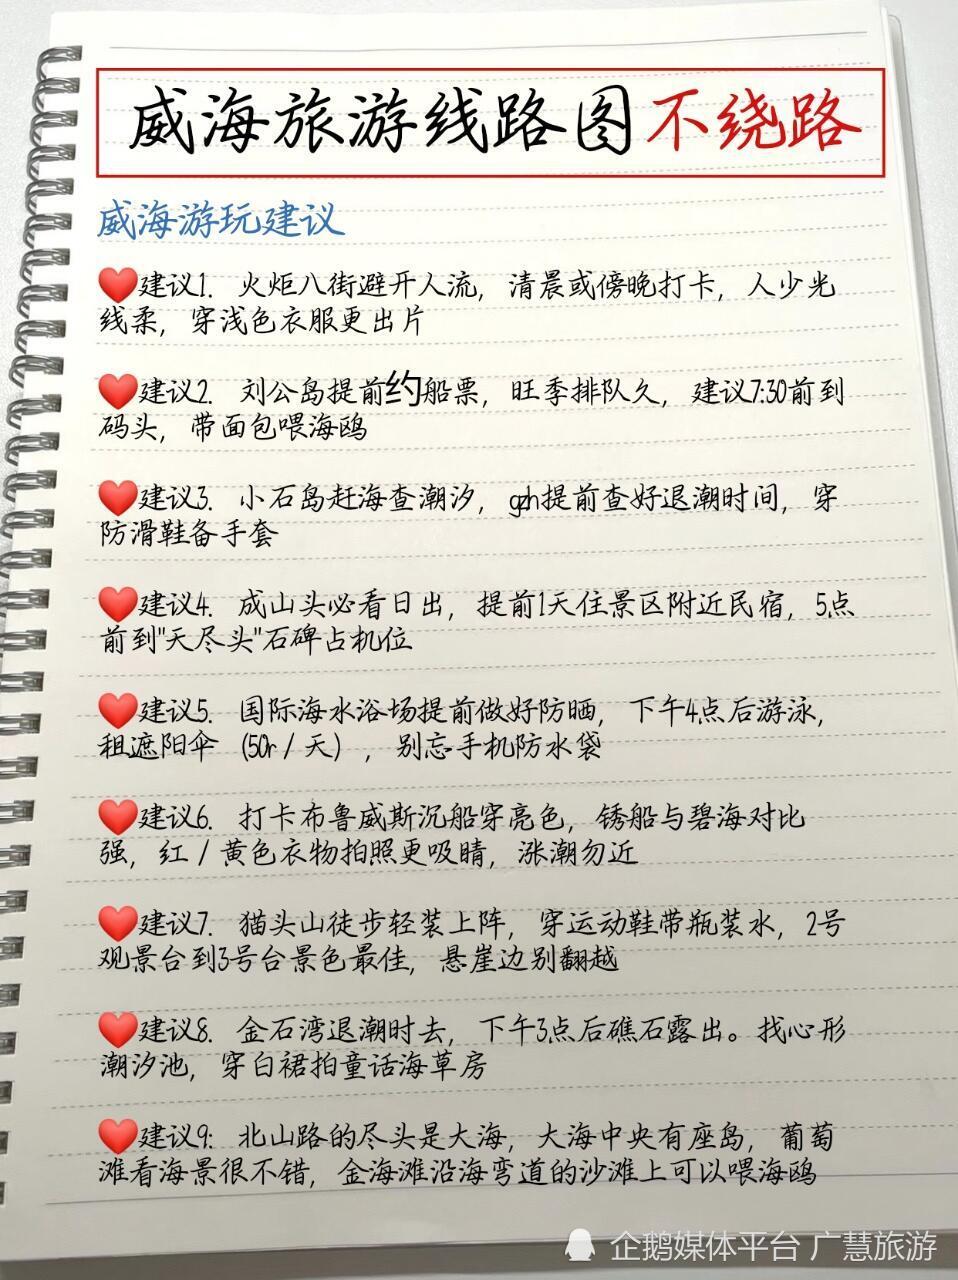 威海旅游线路图不绕路
威海游玩建议
建议1. 火炬八街避开人流，清晨或傍晚打卡，人少光
线柔，穿浅色衣服更出片
建议2. 刘公岛提前约船票，旺季排队久，建议7:30前到
码头，带面包喂海鸥
建议3. 小石岛赶海查潮汐，gzh提前查好退潮时间，穿
防滑鞋备手套
建议4. 成山头必看日出，提前1天住景区附近民宿，5点
前到"天尽头"石碑占机位
建议5. 国际海水浴场提前做好防晒，下午4点后游泳，
租遮阳伞（50r/天），别忘手机防水袋
建议6. 打卡布鲁威斯沉船穿亮色，锈船与碧海对比
强，红/黄色衣物拍照更吸睛，涨潮勿近
建议7. 猫头山徒步轻装上阵，穿运动鞋带瓶装水，2号
观景台到3号台景色最佳，悬崖边别翻越
建议8. 金石湾退潮时去，下午3点后礁石露出。找心形
潮汐池，穿白裙拍童话海草房
建议9: 北山路的尽头是大海，大海中央有座岛，葡萄
滩看海景很不错，金海滩沿海弯道的沙滩上可以喂海鸥
企鹅媒体平台 广慧旅游